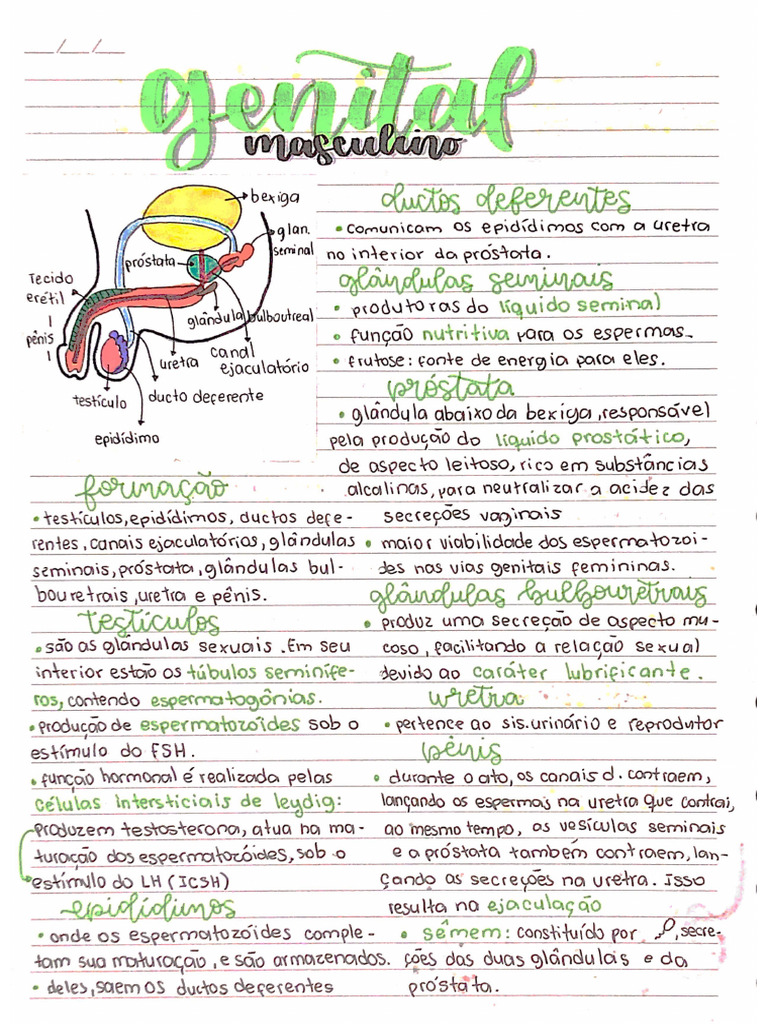 __/__/__
genital
masculino
bexiga
glan.
seminal
próstata
Tecido
erétil
pênis
glândula bulboutreal
canal
ejaculatório
uretra
ducto deferente
testículo
epidídimo
formação
• testículos, epidídimos, ductos defe-
rentes, canais ejaculatórios, glândulas
seminais, próstata, glândulas bul-
bouretrais, uretra e pênis.
testículos
• são as glândulas sexuais. Em seu
interior estão os túbulos seminífe-
ros, contendo espermatogônias.
• produção de espermatozóides sob o
estímulo do FSH.
• função hormonal é realizada pelas
células intersticiais de leydig:
produzem testosterona, atua na ma-
turação dos espermatozóides, sob o
estímulo do LH (ICSH)
epidídimos
• onde os espermatozóides comple-
tam sua maturação, e são armazenados.
• deles, saem os ductos deferentes
ductos deferentes
• comunicam os epidídimos com a uretra
no interior da próstata.
glândulas seminais
• produtoras do líquido seminal
• função nutritiva para os espermas.
• frutose: fonte de energia para eles.
próstata
• glândula abaixo da bexiga, responsável
pela produção do líquido prostático,
de aspecto leitoso, rico em substâncias
alcalinas, para neutralizar a acidez das
secreções vaginais
• maior viabilidade dos espermatozoi-
des nas vias genitais femininas.
glândulas bulbouretrais
• produz uma secreção de aspecto mu-
coso, facilitando a relação sexual
devido ao caráter lubrificante.
uretra
• pertence ao sis. urinário e reprodutor
pênis
• durante o ato, os canais d. contraem,
lançando os espermas na uretra que contrai,
ao mesmo tempo, as vesículas seminais
e a próstata também contraem, lan-
çando as secreções na uretra. Isso
resulta na ejaculação
• sêmem: constituído por , secre-
ções das duas glândulas e da
próstata.